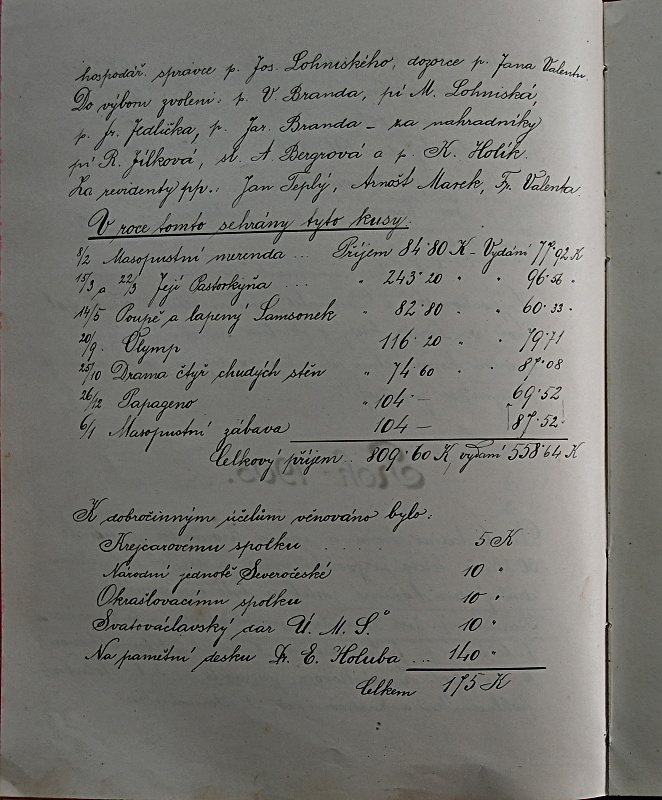 hospodář. správce p. Jos. Lohniského, dozorce p. Jana Valentu.
Do výboru zvoleni: p. V. Branda, pí M. Lohniská,
p. Jr. Jedlička, p. Jar. Branda – za nahradníky
pí R. Jílková, sl. A Bergrová a p. K. Holík.
Za revidenty pp.: Jan Teplý, Arnošt Marek, Fr. Valenta.
V roce tomto sehrány tyto kusy:
8/2 Masopustní merenda ... Příjem 84·80 K – Vydání 77·92 K
15/3 a 22/3 Její Pastorkyňa ... " 243·20 " " 96·56 "
14/5 Poupě a lapený Samsonek " 82·80 " " 60·33 "
20/9. Olymp 116·20 " " 79·71
25/10 Drama čtyř chudých stěn " 74·60 " " 87·08
26/12 Papageno " 104·— 69·52
6/1 Masopustní zábava 104— 87·52
Celkový příjem .. 809·60 K, vydání 558·64 K
K dobročinným účelům věnováno bylo:
Krejcarovému spolku ..... 5 K
Národní jednotě Severočeské 10 "
Okrašlovacímu spolku 10 "
Svatováclavský dar Ú. M. Š. 10 "
Na pamětní desku Dr. E. Holuba ... 140 "
Celkem 175 K